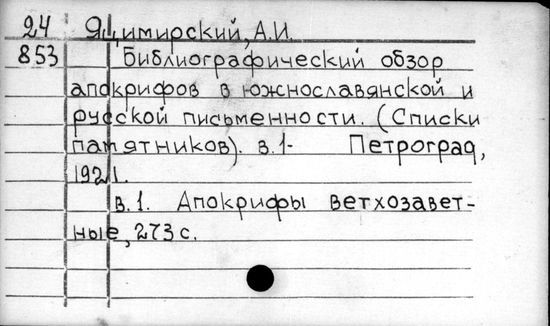 24 Яцимирский, А.И.
853 Библиографический обзор
апокрифов в южнославянской и
русской письменности. (Списки
памятников). в.1- Петроград,
1921.
в.1. Апокрифы ветхозавет-
ные, 273 с.